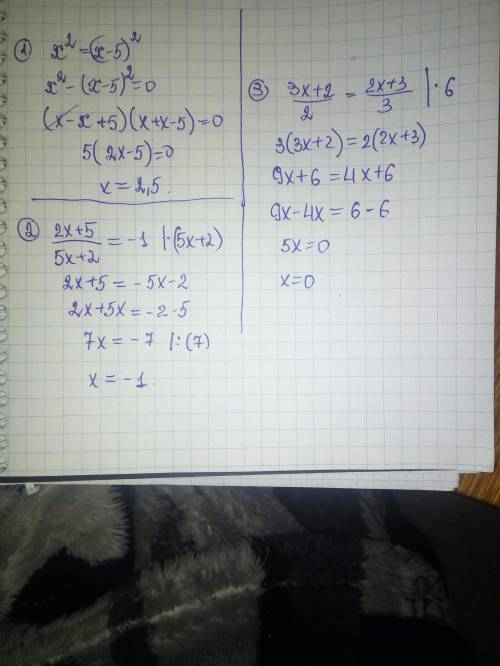 ① x² = (x-5)²
x² - (x-5)² = 0
(x-x+5)(x+x-5) = 0
5(2x-5) = 0
x = 2,5.
② (2x+5)/(5x+2) = -1 |·(5x+2)
2x+5 = -5x-2
2x+5x = -2-5
7x = -7 |:(7)
x = -1.
③ (3x+2)/2 = (2x+3)/3 |·6
3(3x+2) = 2(2x+3)
9x+6 = 4x+6
9x-4x = 6-6
5x = 0
x = 0